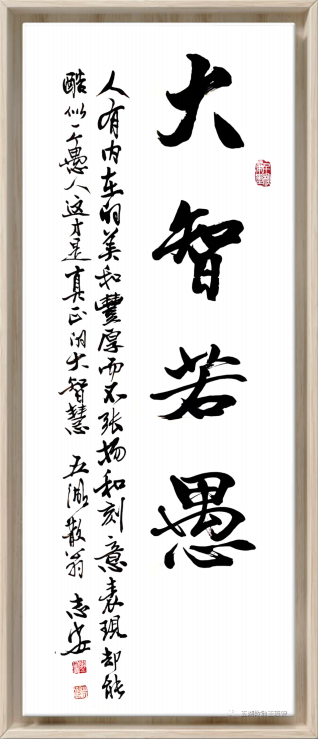 大智若愚
人有内在的美和豐厚而不张扬和刻意表現却能
酷似一个愚人这才是真正的大智慧 五湖散翁 志安